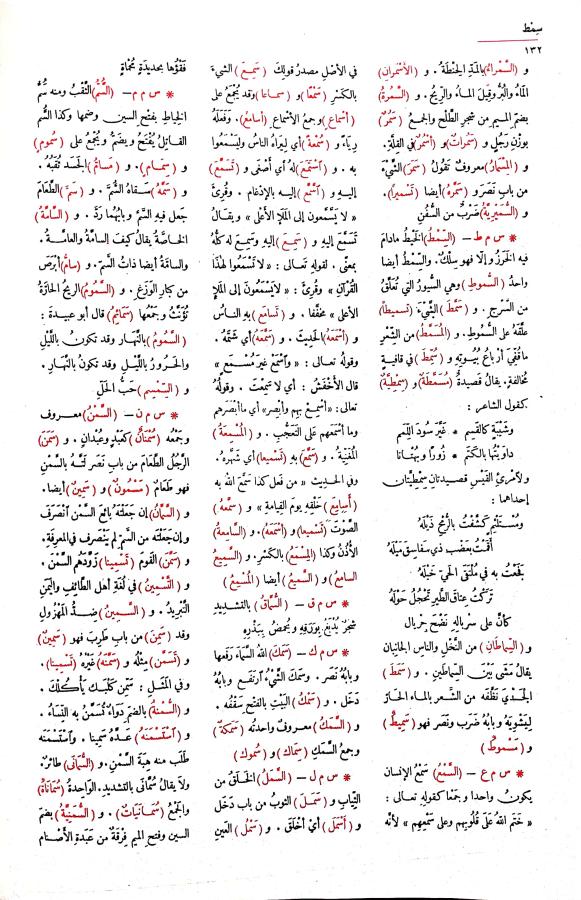 سمط
١٣٢
و (السَّمْرَاءُ) بالمدِّ الحِنْطَةُ . و (الأَسْمَرانِ)
الماءُ والبُرُّ وقيلَ الماءُ والرِّيحُ . و (السَّمُرَةُ)
بضمِ الميمِ من شجرِ الطَّلْحِ والجمعُ (سَمُرٌ)
بوزنِ رجلٍ و (سَمُراتٌ) و (أَسْمُرٌ) في القِلَّةِ .
و (المِسْمَارُ) معروفٌ تقولُ (سَمَرَ) الشَّيْءَ
من بابِ نَصَرَ و (سَمَّرَهُ) أيضا (تَسْمِيراً) .
و (السُّمَيْرِيَّةُ) ضَرْبٌ من السُّفُنِ
* س م ط – (السِّمْطُ) الخَيْطُ مادامَ
فيه الخَرَزُ وإلّا فهو سِلْكٌ . والسِّمْطُ أيضا
واحدُ (السُّموطِ) وهي السُّيورُ التي تُعَلَّقُ
من السَّرْجِ . و (سَمَّطَ) الشَّيْءَ (تَسميطاً)
علَّقَهُ على السُّموطِ . و (المُسَمَّطُ) من الشِّعْرِ
ما قُفِّيَ أرباعُ بُيُوتِهِ و (سُمِّطَ) في قافيةٍ
مُخالفةٍ . يقالُ قصيدةٌ (مُسَمَّطَةٌ) و (سِمْطِيَّةٌ)
كقول الشاعر :
وشَيْبَةٍ كالقَسِمِ * غَيَّرَ سُودَ اللِّمَمِ
داوَيْتُها بالكَتَمِ * زُوراً وبُهْتانا
ولامرئِ القَيْسِ قصيدتانِ سِمْطِيَّتان
إحداهما :
ومُسْتَلْئِمٍ كَشَّفْتُ بالرُّمْحِ ذَيْلَهُ
أقَمْتُ بعَضْبٍ ذي سَفاسِقَ مَيْلَهُ
فَجَعْتُ به في مُلْتَقَى الحيِّ خَيْلَهُ
تركتُ عِتاقَ الطَّيرِ تَحْجُلُ حَوْلَهُ
كأنَّ على سِرْبالِهِ نَضْحَ جِرْيال
و (السِّماطانِ) من النَّخْلِ والناسِ الجانِبانِ
يقالُ مَشَى بَيْنَ السِّماطَينِ . و (سَمَطَ)
الجَدْيَ نَظَّفَه من الشَّعرِ بالماء الحارّ
ليَشْوِيَهُ وبابُهُ ضَرَبَ ونَصَرَ فهو (سَمِيطٌ)
و (مَسْموطٌ)
* س م ع – (السَّمْعُ) سَمْعُ الإنسان
يكونُ واحدا وجَمْعا كقوله تعالى :
« خَتَمَ اللهُ عَلَى قُلُوبِهِم وعلى سَمْعِهِم » لأنّه
في الأصْلِ مصدرُ قولكَ (سَمِعَ) الشيءَ
بالكَسْرِ (سَمْعًا) و (سماعا) وقد يُجْمَعُ على
(أسْماعٍ) وجمعُ الأسْماعِ (أسامِعُ) . وفَعَلَهُ
رِياءً و (سُمْعةً) أي لِيراهُ الناسُ ولِيَسْمَعُوا
به . و (اسْتَمَعَ) لَهُ أي أصْغَى و (تَسَمَّعَ)
إليهِ و (اسَّمَّعَ) إليه بالإدغامِ . وقُرِئَ
« لا يَسَّمَّعون إلى المَلَإِ الأعْلَى » ويقالُ
تَسَمَّعَ إليهِ و (سَمِعَ) إليهِ وسَمِعَ له كلُّهُ
بمعنًى . لقوله تعالى : « لا تَسْمَعُوا لهذا
القُرْآنِ » وقُرِئَ : « لايَسْمَعُونَ إلى المَلَإِ
الأعْلى » مخفَّفا . و (تسامَعَ) بهِ الناسُ
و (أسْمَعَهُ) الحديثَ . و (سَمَّعَهُ) أي شَتَمَهُ .
وقولُه تعالى : « واسْمَعْ غيرَ مُسْمَعٍ »
قال الأخْفَشُ : أي لا سَمِعْتَ . وقولُهُ
تعالى : «أسْمِعْ بهم وأبْصِرْ» أي ما أبْصَرَهم
وما أسْمَعَهم على التَّعَجُّبِ . و (المُسْمِعةُ)
المُغَنِّيَةُ . و (سَمَّعَ) به (تَسْمِيعا) أي شَهَّرَه .
وفي الحديثِ « من فعلَ كذا سَمَّعَ اللهُ به
(أسامِعَ) خَلْقِهِ يومَ القيامةِ » و (سَمَّعَهُ)
الصَّوتَ (تَسْميعا) و (أسْمَعَهُ) . و (السامِعةُ)
الأُذُنُ وكذا (المِسْمَعُ) بالكَسْرِ . و (السَّمِيعُ)
السامِعُ و (السَّمِيعُ) أيضا (المُسْمِعُ)
* س م ق – (السُّمَّاقُ) بالتشديدِ
شجرٌ يُدْبَغُ بوَرَقِهِ ويُحْمَضُ بِبِذْرِهِ
* س م ك – (سَمَكَ) اللهُ السَّماءَ رَفَعَها
وبابُهُ نَصَرَ . وسَمَكَ الشَّيْءُ ارْتَفَعَ وبابُهُ
دَخَلَ . و (سَمْكُ) البَيْتِ بالفَتْحِ سَقْفُه .
و (السَّمَكُ) معروفٌ واحدتُه (سَمَكةٌ)
وجمعُ السَّمَكِ (سِماكٌ) و (سُموك)
* س م ل – (السَّمَلُ) الخَلَقُ من
الثِّيابِ و (سَمَلَ) الثوبُ من بابِ دَخَلَ
و (أسْمَلَ) أيْ أخْلَقَ . و (سَمْلُ) العَيْنِ
فَقْؤُها بحديدةٍ مُحْماةٍ
* س م م – (السَّمُّ) الثَّقْبُ ومنه سَمُّ
الخِياطِ بفتحِ السينِ وضمِها وكذا السَّم
القاتلُ يُفْتَحُ ويُضَمُّ ويُجْمَعُ على (سُمومٍ)
و (سِمامٍ) . و (مَسامُّ) الجَسَدِ ثُقَبُه .
و (سَمَّهُ) سَقاهُ السَّمَّ . و (سَمَّ) الطَّعَامَ
جَعَلَ فيه السَّمَّ وبابُهُما رَدَّ . و (السَّامَّةُ)
الخاصَّةُ يقالُ كيفَ السامَّةُ والعامّةُ .
والسامّةُ أيضا ذاتُ السَّمِّ . و (سامُّ) أبْرَصَ
من كبارِ الوَزَغِ . و (السَّمُومُ) الريحُ الحارّةُ
تُؤَنَّثُ وجَمْعُها (سَمائِمُ) قال أبو عبيدةَ :
(السَّمُومُ) بالنَّهارِ وقد تكونُ باللَّيْلِ
والحَرورُ باللَّيلِ وقد تكونُ بالنَّهارِ .
و (السِّمْسِمُ) حَبُّ الحَلِّ
* س م ن – (السَّمْنُ) معروف
وجمعُه (سُمْنانٌ) كعَبْدٍ وعُبْدانٍ . و (سَمَنَ)
الرَّجُلُ الطَّعَامَ من بابِ نَصَرَ لَتَّهُ بالسَّمْنِ
فهو طَعَامٌ (مَسْمُونٌ) و (سَمِينٌ) أيضا .
و (السَّمَّانُ) إن جعلتَهُ بائِعَ السَّمْنِ انْصَرَفَ
وإن جعلتَه من السَّمِّ لم يَنْصَرِفْ في المعرفةِ .
و (سَمَّنَ) القومَ (تَسْمِينا) زوَّدَهم السَّمْنَ .
و (التَّسْمينُ) في لُغةِ أهلِ الطَّائفِ واليَمَنِ
التَّبْريدُ . و (السَّمينُ) ضِدُّ المَهْزولِ
وقد (سَمِنَ) من بابِ طَرِبَ فهو (سَمينٌ)
و (تَسَمَّنَ) مثلُه و (سَمَّنَهُ) غَيْرُهُ (تَسْمِينا) .
وفي المَثَلِ : سَمِّنْ كَلْبَكَ يَأْكُلْكَ .
و (السُّمْنةُ) بالضمِّ دَواءٌ تُسَمَّنُ به النِّساءُ .
و (اسْتَسْمَنَهُ) عَدَّهُ سَمِينا . و (اسْتَسْمَنَهُ)
طَلَبَ منه هِبَةَ السَّمْنِ . و (السُّمَانَى) طائرٌ.
ولا يقالُ سُمَّانَى بالتشديدِ. الواحدةُ (سُمَانَاةٌ)
والجمعُ (سُمانَيَاتٌ) . و (السُّمَنِيَّةُ) بضمِ
السينِ وفتحِ الميمِ فِرْقةٌ من عَبَدةِ الأصْنام